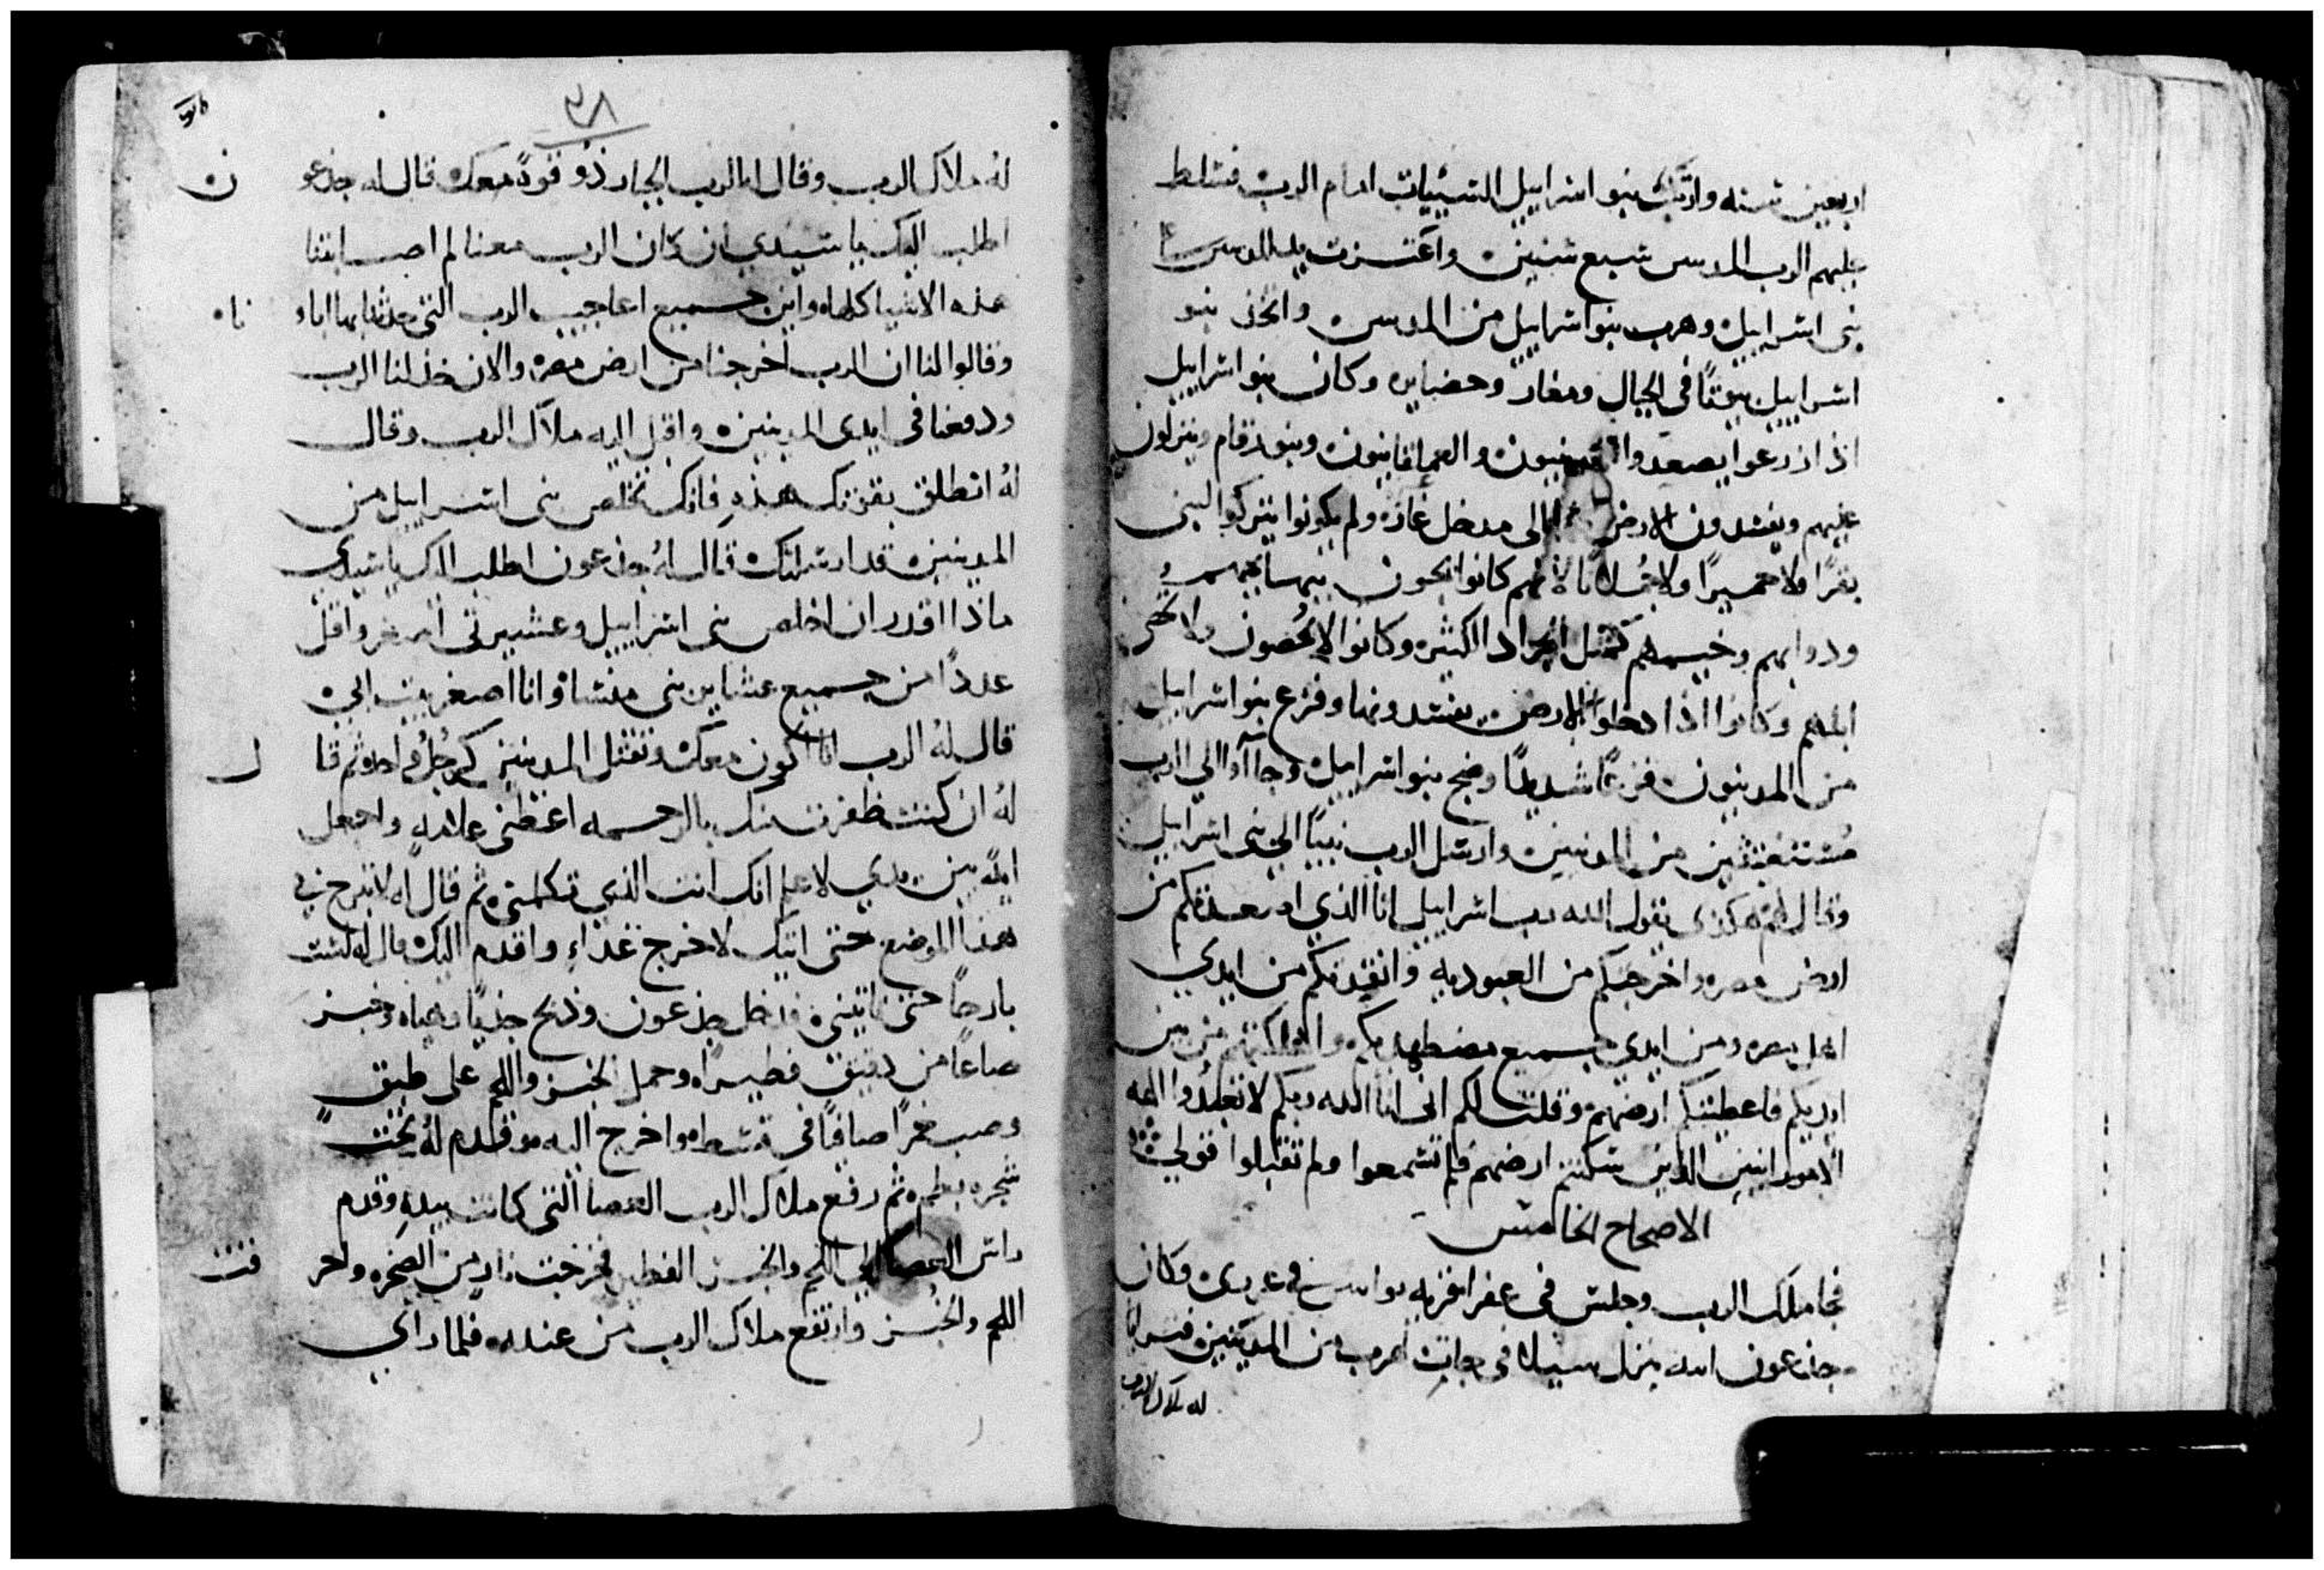 اربعين سنه وارتكب بنوا اسراييل السيئات امام الرب فسلط
عليهم الرب المدين سبع سنين واعتزت يد المدين
بنى اسراييل وهرب بنو اسراييل من المدين واتخذ بنو
اسراييل بيوتًا فى الجبال ومغار وحضاير وكان بنو اسراييل
اذا ازرعوا يصعدوا المدينيون والعمالقانيون وبنو رقام وينزلون
عليهم ويفسدون الارض الى مدخل غازه ولم يكونوا يتركوا لبنى
بقرًا ولا حميرًا ولا جُملانًا لانهم كانوا يجون ببهايمهم
ودوابهم وخيمهم كمثل الجراد الكثير وكانوا لا يُحصون ولا تحصى
ابلهم وكانوا اذا دخلوا الارض يفسدونها وفزع بنو اسراييل
من المدينيون فزعًا شديدًا وضج بنو اسراييل وجاآوا الى الرب
مُستغيثين من المدينين وارسل الرب نبيًا الى بنى اسراييل
وقال لهم هكذى يقول الله رب اسراييل انا الذي اصعدتكم من
ارض مصر واخرجتكم من العبوديه وانقذتكم من ايدي
اهل مصر ومن ايدى جميع مضطهديكم واهلكتهم من بين
ايديكم فاعطيتكم ارضهم وقلت لكم انى انا الله ربكم لا تعبدُوا الهة
الامورانيين الذين سكنتم ارضهم فلم تسمعوا ولم تقبلوا قولي
الاصحاح الخامس
فجا ملك الرب وجلس فى عفرا قرية يواس وكان
جذعون ابنه فى هرب من المدينين
له ملاك الرب
٢٨
لهُ ملاك الرب وقال له الرب الجبار ذُو قوةً معك قال له جذعو ن
اطلب اليك يا سيدي ان كان الرب معنا لم اصابتنا
هذه الاشيا كلها واين جميع اعاجيب الرب التى حدثنا بها اباو نا
وقالوا لنا ان الرب اخرجنا من ارض مصر والان خذلنا الرب
ودفعنا فى ايدى المدينين واقبل اليه ملاك الرب وقال
لهُ انطلق بقوتك هذهِ فانك تخلص بنى اسراييل من
المدينين قد ارسلتك قال لهُ جذعون اطلب اليك يا سيدي
ماذا اقدر ان اخلص بنى اسراييل وعشيرتى اصغر واقل
عددًا من جميع عشاير بنى منسا وانا اصغر بيت ابي
قال لهُ الرب انا اكون معك وتقتل المدينين كرجُلٍ واحد ثم قا ل
لهُ ان كنت ظفرت منك بالرحمه اعطنى علامه واجعل
ايةً بين يدي لاعلم انك انت الذي تكلمنى ثم قال له لا تبرح من
هذا الموضع حتى اتيك لاخرج غداءٍ واقدم اليك قال له لست
بارحًا حتى تاتينى فدخل جذعون وذبح جديًا وهياه وخبز
صاعًا من دقيق فطيراه وحمل الخبز واللحم على طبق
وصب خمرًا صافيًا فى قسط واخرج اليه وقدم لهُ تحت
شجره بطمه ثم رفع ملاك الرب العصا التى كانت بيدهِ وقدم
راس العصا الى اللحم والخبز الفطير فخرجت نار من الصخره واحر قت
اللحم والخُبز وارتفع ملاك الرب من عنده فلما راى